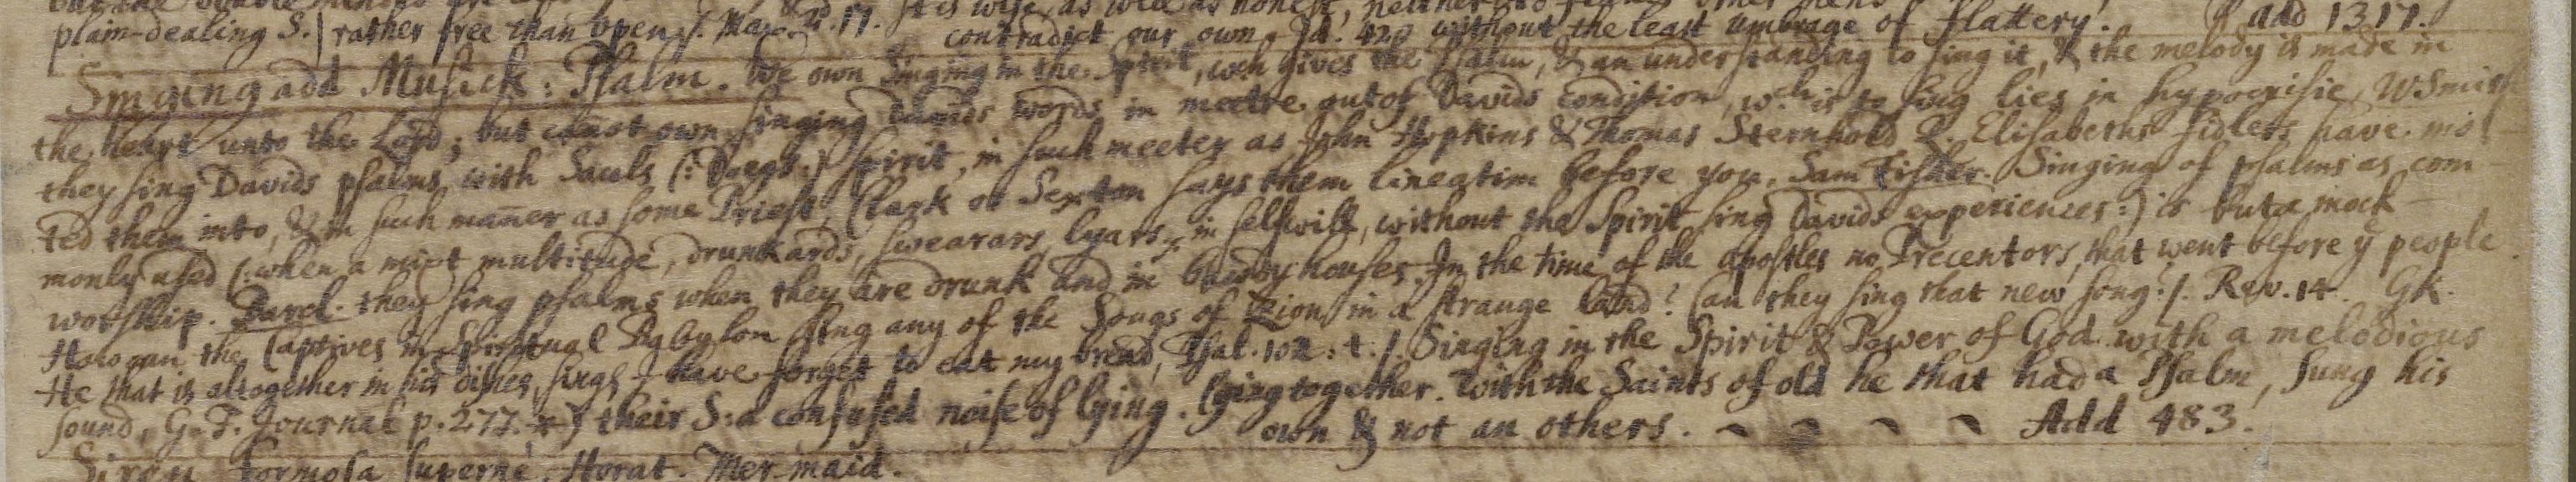 plain-dealing S. | rather free than open. /. Max. 2d. 17. It is wise, as well as honest, neither to
contradict our own. Id. 420 without the least umbrage of flattery. add 1317.
Singing add Musick: Psalm. We own Singing in the Spirit, wch gives the Psalm, & an understanding to sing it, & the melody is made in
the heart unto the Lord; but canot own singing Davids words in meetre out of Davids condition, wch is to sing lies in hypocrisie, W Smith
they sing Davids psalms with Sauls (: Doegs :) spirit, in such meeter as John Hopkins & Thomas Sternhold Q. Elisabeths fidlers have mol-
ted them into, & in such maner as some Priest, Clark or Sexton says them lineatim before you, Sam Fisher. Singing of psalms as com-
monly used (: when a mixt multitude, drunkards, swearars, lyars, in selfwill, without the Spirit sing Davids experiences :) is but a mock-
worship. Barcl. they sing psalms when they are drunk and in bawdy houses. In the time of the apostles no Precentors, that went before ye people.
How can the Captives in Spiritual Babylon sing any of the Songs of Zion in a strange land? Can they sing that new song? /. Rev. 14. GK.
He that is altogether in his dishes, sings I have forget to eat my bread, Psal. 102: 4. /. Singing in the Spirit & Power of God with a melodious
sound, G. F. Journal p. 277. * } their S: a confused noise of lying. lying together. With the Saints of old he that had a Psalm, sung his
own & not an others. - - - - Add 483.
Siren formosa superne, Horat. Mer-maid.